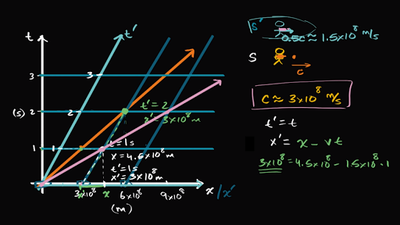 t
t'
3
3
2
2
1
1
(s)
t'=2
x'=3×10⁸m
t=1s
x=4.5×10⁸m
t'=1s
x'=3×10⁸m
3×10⁸
x
6×10⁸
9×10⁸
x/x'
(m)
S'
0.5c≈1.5×10⁸ m/s
S
c
C≈3×10⁸ m/s
t'=t
x'=x-vt
3×10⁸=4.5×10⁸-1.5×10⁸·1